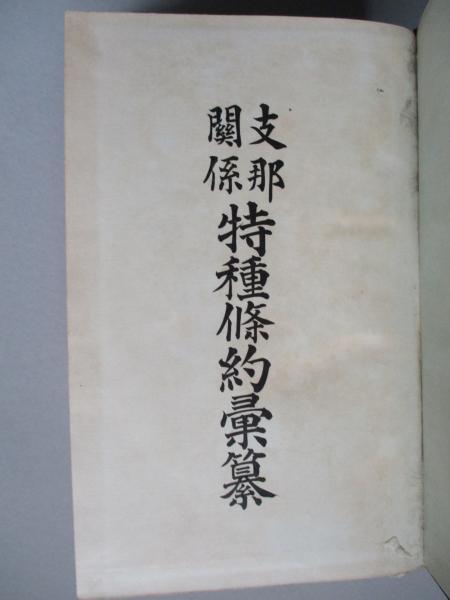 支那
關係
特種條約彙纂